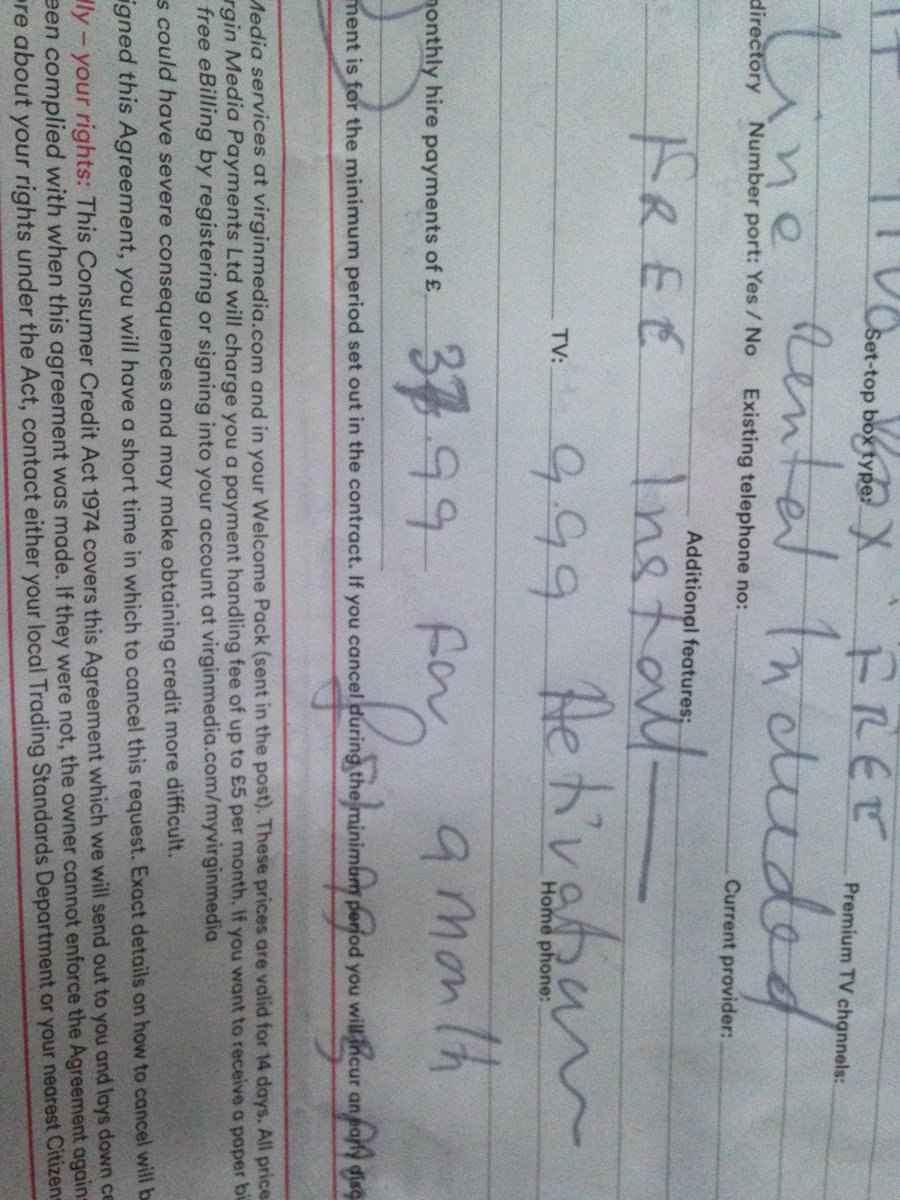 TIVO BOX FREE
Set-top box type: Premium TV channels:
Line Rental Included
directory Number port: Yes / No Existing telephone no: Current provider:
Additional features:
FREE Install
TV: 9.99 Activation Home phone:
monthly hire payments of £ 37.99 For 9 month
ment is for the minimum period set out in the contract. If you cancel during the minimum period you will incur an early
Media services at virginmedia.com and in your Welcome Pack (sent in the post). These prices are valid for 14 days. All price
rgin Media Payments Ltd will charge you a payment handling fee of up to £5 per month. If you want to receive a paper bi
free eBilling by registering or signing into your account at virginmedia.com/myvirginmedia
s could have severe consequences and may make obtaining credit more difficult.
igned this Agreement, you will have a short time in which to cancel this request. Exact details on how to cancel will b
lly – your rights: This Consumer Credit Act 1974 covers this Agreement which we will send out to you and lays down ce
een complied with when this agreement was made. If they were not, the owner cannot enforce the Agreement again
re about your rights under the Act, contact either your local Trading Standards Department or your nearest Citizen